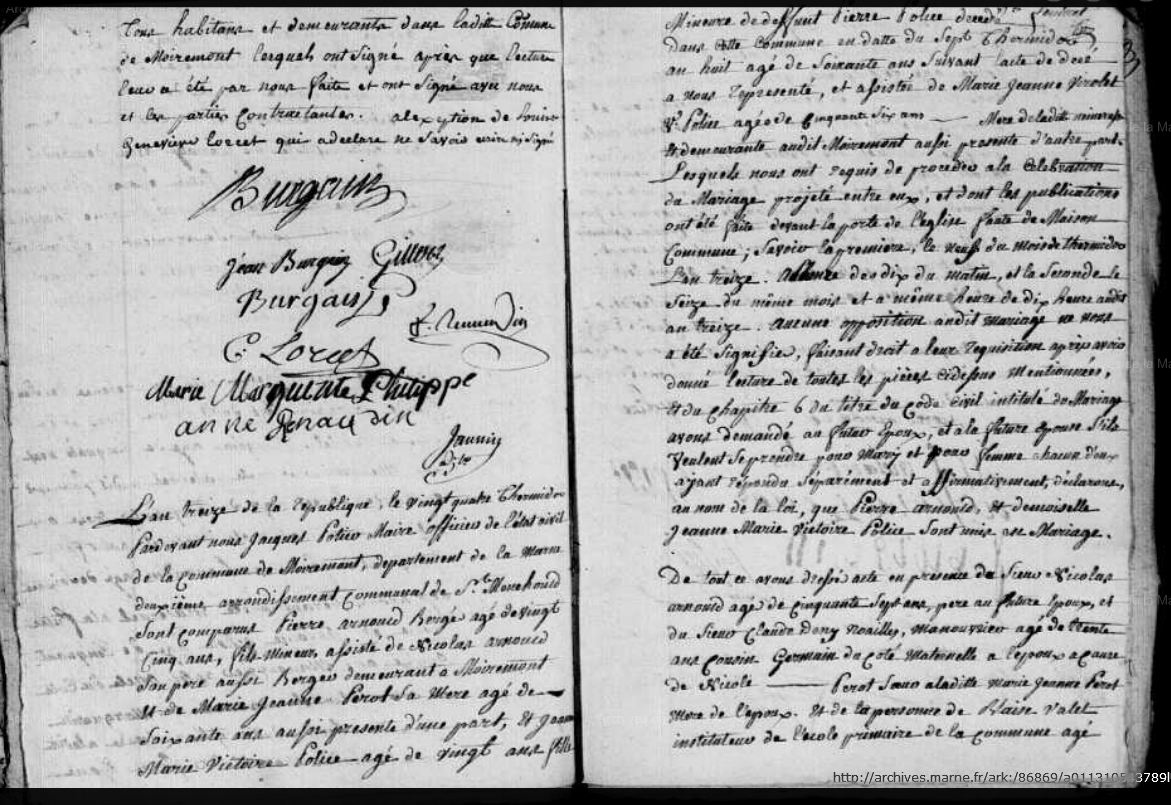 Tous habitans et demeurants dans laditte Commune
de Moiremont lesquels ont Signé après que lecture
leur a été par nous faite et ont Signé avec nous
et les parties Contractantes. alexption de Louise
Genevieve Lorcet qui a declaré ne Savoir ecrire ni Signé
Burgain
Jean Burguin Gillerez
Burgain
C. Lorcet
Marie Marguerite Philippe
anne Renaudin
L'an treize de la republique, le vingt quatre Thermidor
Pardevant nous Jacques Potier Maire officier de l'état civil
de la Commune de Moiremont, departement de la Marne
deuxième arrondissement Communal de Ste Menehould
Sont comparus Pierre arnould Berger agé de vingt
Cinq ans, fils Mineur, assisté de Nicolas arnould
Son pere aussi Berger demeurant a Moiremont
Et de Marie Jeanne Perot Sa Mere agé de
Soixante ans aussi presente d'une part, Et Jeanne
Marie Victoire Police agé de vingt ans fille
Mineure de deffunt Pierre Police decedé
dans Cette Commune en datte du Sept Thermidor,
an huit agé de Soixante ans Suivant l'acte de decé
a nous representé, et assistée de Marie Jeanne Virolet
Ve Police agée de Cinquante Six ans Mere de ladite mineure
Et demeurante audit Moiremont aussi presente d'autre part.
Lesquels nous ont requis de proceder a la Celebration
du Mariage projeté entre eux, et dont les publications
ont été faite devant la porte de l'eglise faute de Maison
Commune; Savoir la premiere, le neuf du mois de thermidor
L'an treize. a l'heure de dix du matin, et la Seconde le
Seize du même mois et a même heure de dix heure audit
an treize. aucune opposition audit mariage ne nous
a été Signifie, faisant droit a leur requisition après avoir
donné lecture de toutes les pièces cidessus Mentionnées,
Et du Chapitre 6 du titre du Code Civil intitulé du Mariage
avons demandé au futur Epoux, et a la future épouse s'ils
Veulent Se prendre pour Mary et pour femme chacun d'eux
ayant répondu Séparément et affirmativement, déclarons,
au nom de la loi, que Pierre arnould, Et demoiselle
Jeanne Marie Victoire Police Sont unis en Mariage.
De tout ce avons dressé acte en presence du Sieur Nicolas
arnould agé de Cinquante Sept ans, pere au future Epoux, et
du Sieur Claude Deny Noailles, manouvrier agé de trente
ans Cousin Germain du Coté Maternelle a l'epoux a cause
de Nicole Perot Sœur a laditte Marie Jeanne Perot
Mere de l'epoux. Et de la personne de Blaise Valet
instituteur de l'école primaire de la commune agé